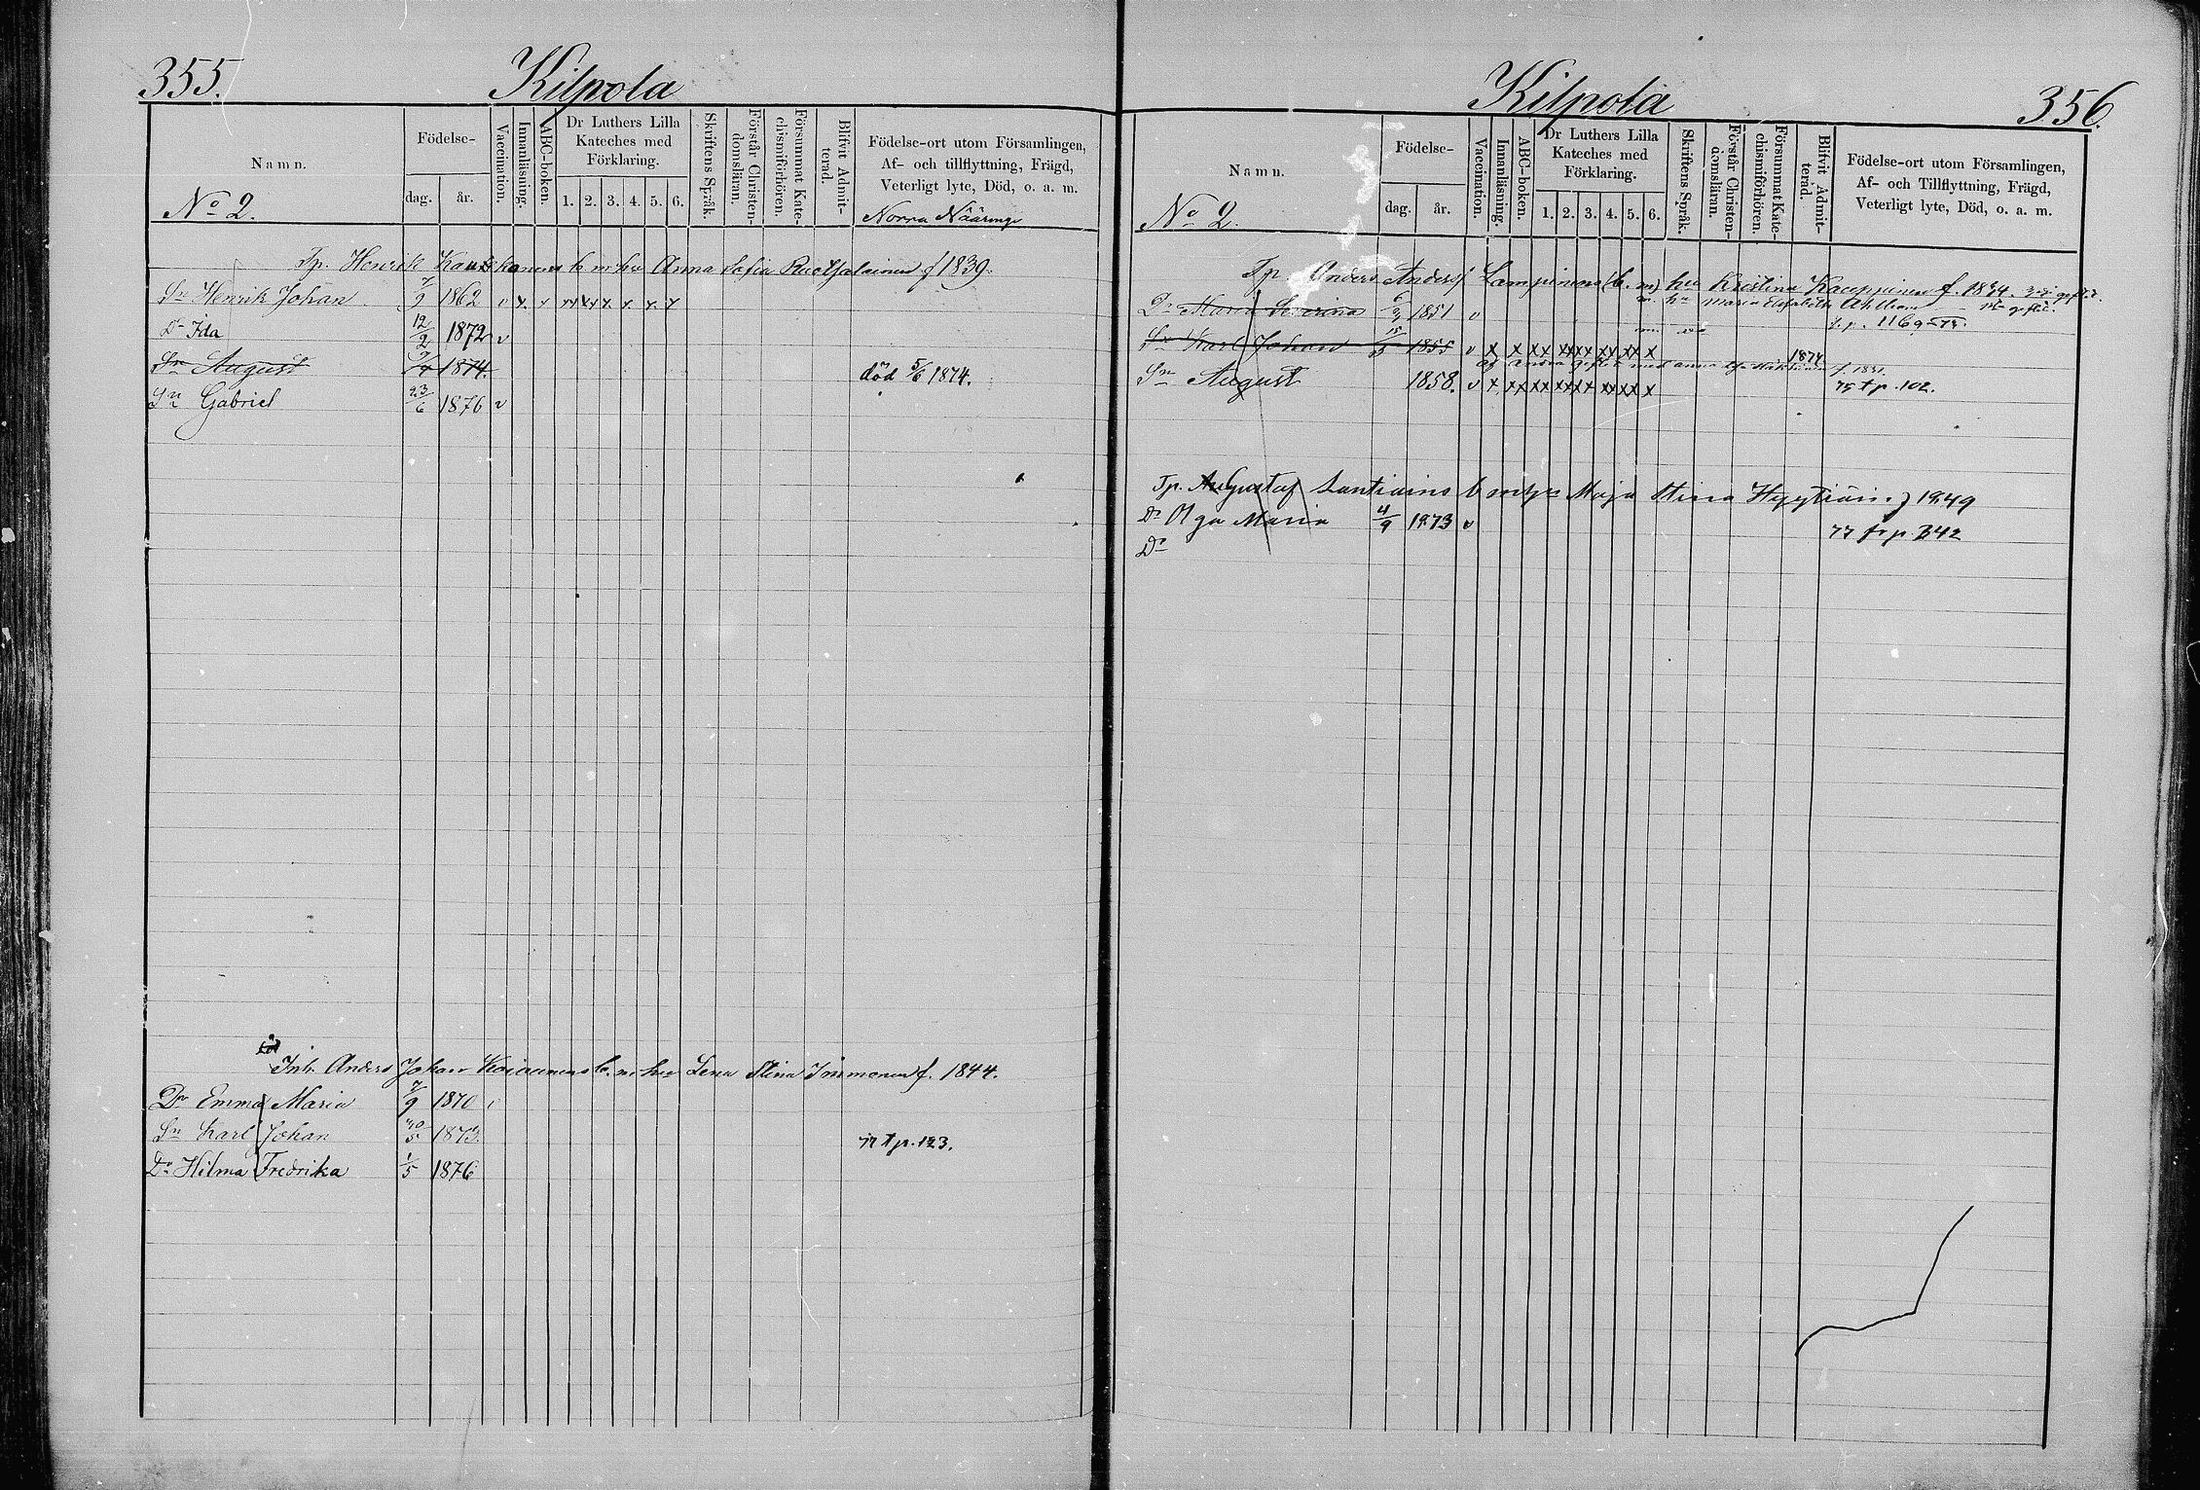 355.
Kilpola
Namn.
No 2.
Födelse-
dag.
år.
Vaccination.
Innanläsning.
ABC-boken.
Dr Luthers Lilla
Kateches med
Förklaring.
1. 2. 3. 4. 5. 6.
Skriftens Språk.
Förstår Christen-
domsläran.
Försummat Kate-
chismiförhören.
Blifvit Admit-
terad.
Födelse-ort utom Församlingen,
Af- och tillflyttning, Frägd,
Veterligt lyte, Död, o. a. m.
Norra Nääringi
Tp. Henrik b m hu Anna Sofia Ruotsalainen f 1839.
Sn Henrik Johan 7/9 1862 v x x xx xx x x x x
Dr Ida 12/2 1872 v
Sn August 1874. död 5/6 1874.
Sn Gabriel 23/6 1876 v
Inh. Anders Johan b. m hu Lena Stina Immonen f. 1844.
Dr Emma Maria 7/9 1870
Sn Karl Johan 30/5 1873. 77 t p. 123.
Dr Hilma Fredrika 1/5 1876
Kilpola
356.
Namn.
No 2.
Födelse-
dag.
år.
Vaccination.
Innanläsning.
ABC-boken.
Dr Luthers Lilla
Kateches med
Förklaring.
1. 2. 3. 4. 5. 6.
Skriftens Språk.
Förstår Christen-
domsläran.
Försummat Kate-
chismiförhören.
Blifvit Admit-
terad.
Födelse-ort utom Församlingen,
Af- och Tillflyttning, Frägd,
Veterligt lyte, Död, o. a. m.
Tp. Anders Anders Lampinens (b. m) hu Kristina Kauppinen f. 1834.
m. hu Maria Elisabeth
Dr Maria Severina 6/9 1851 v t. p. 1169
Sn Karl Johan 15 1855 v x x xx xxxx xx xx x 1874
med Anna f. 1851.
Sn August 1858. v x xx xx xxxx xx xx x 75 t p. 102.
Tp. Gustaf Lantiains b m hu Maja Stina Hyytiäin. f 1849
Dr Olga Maria 4/9 1873 v 77 t p 342
Dr